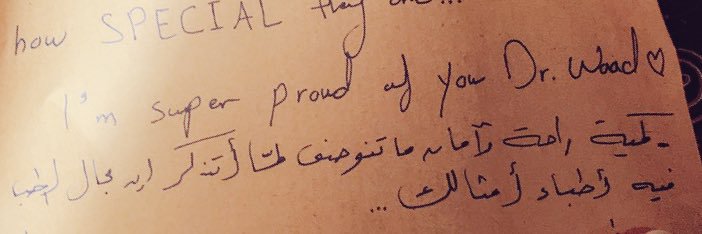 how SPECIAL they are...
I'm super proud of you Dr. Waad ♡
- كمية راحة وأمان ما تنوصف لمّا أتذكر إن مجال الطب
فيه أطباء أمثالك ...